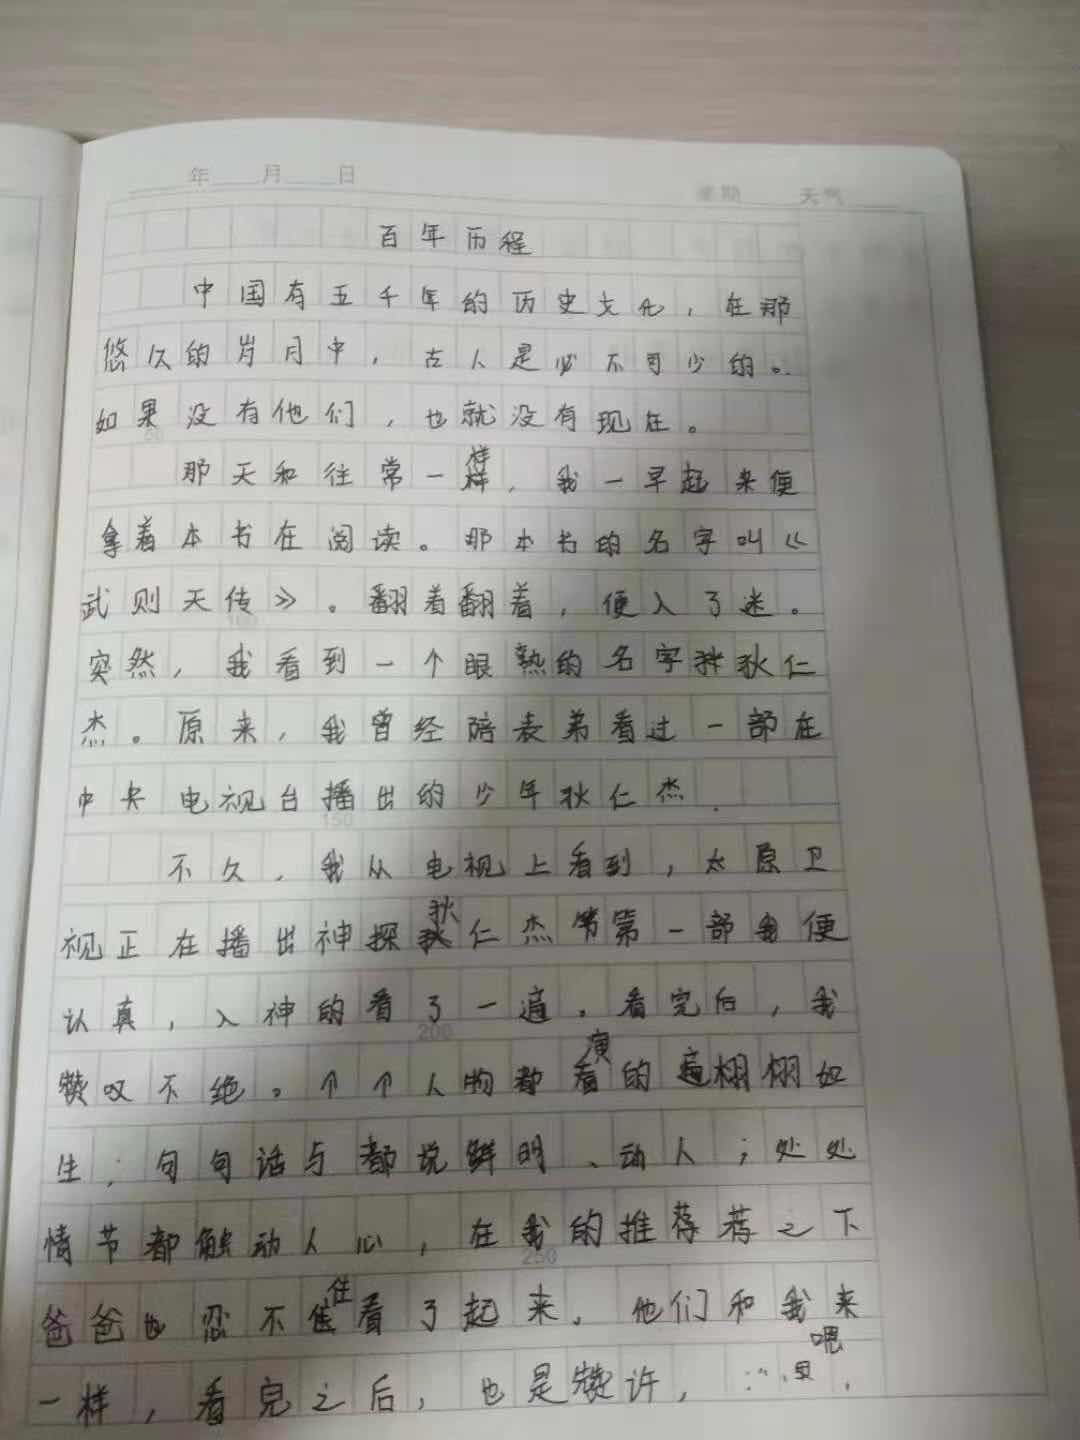 年 月 日 星期 天气
百年历程
中国有五千年的历史文化，在那
悠久的岁月中，古人是必不可少的。
如果没有他们，也就没有现在。
那天和往常一样，我一早起来便
拿着本书在阅读。那本书的名字叫《
武则天传》。翻着翻着，便入了迷。
突然，我看到一个眼熟的名字狄仁
杰。原来，我曾经陪表弟看过一部在
中央电视台播出的少年狄仁杰.
不久，我从电视上看到，太原卫
视正在播出神探狄仁杰第一部我便
认真，入神的看了一遍。看完后，我
赞叹不绝。个个人物都演的栩栩如
生；句句话与都说鲜明、动人；处处
情节都触动人心，在我的推荐荐之下
爸爸也忍不住看了起来。他们和我来
一样，看完之后，也是赞许，
50
100
150
200
250